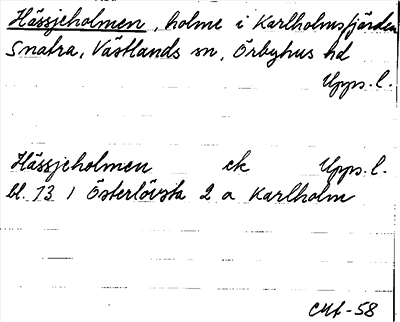 Hässjeholmen, holme i Karlholmsfjärden
Snatra, Västlands sn, Örbyhus hd
Upps. l.
Hässjeholmen ek Upps. l.
bl. 73 1 Österlövsta 2 a Karlholm
CMf-58